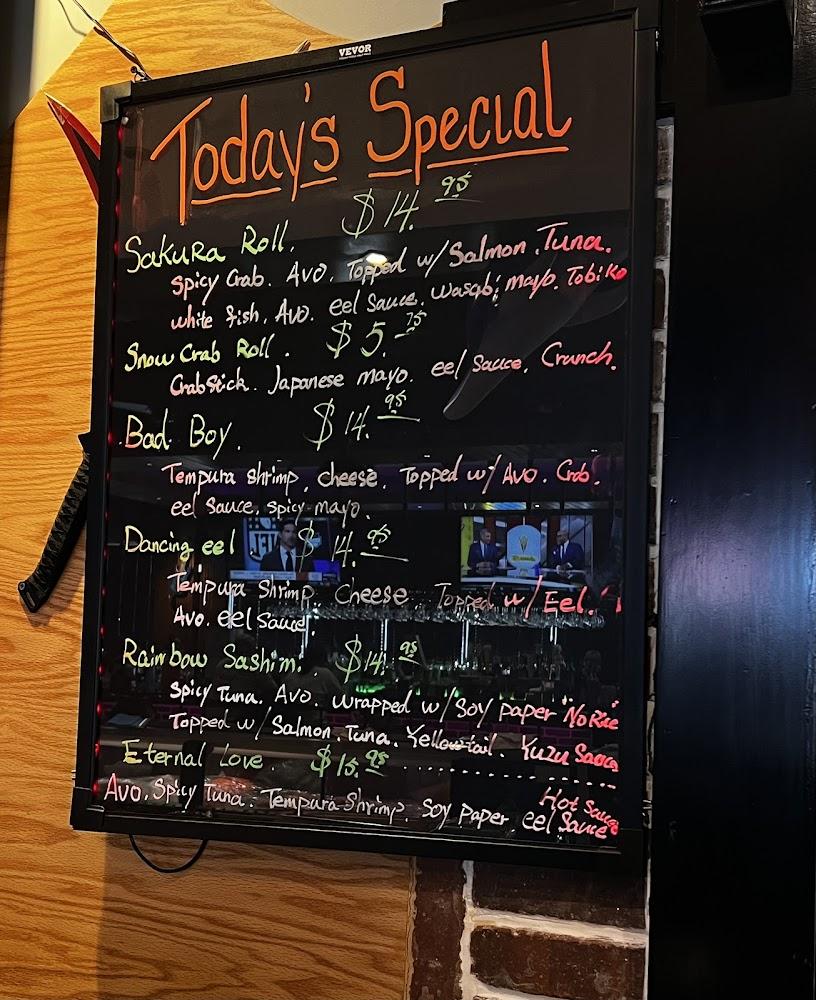 VEVOR
Today's Special
Sakura Roll. $14.95
Spicy Crab. Avo. Topped w/ Salmon. Tuna.
white fish. Avo. eel Sauce. wasabi mayo. Tobiko
Snow Crab Roll. $5.75
Crabstick. Japanese mayo. eel Sauce. Crunch.
Bad Boy. $14.95
Tempura shrimp. cheese. Topped w/ Avo. Crab.
eel Sauce. spicy mayo.
Dancing eel. $14.95
Tempura Shrimp Cheese. Topped w/ Eel.
Avo. eel Sauce.
Rainbow Sashimi. $14.95
Spicy Tuna. Avo. wrapped w/ Soy paper "No Rice"
Topped w/ Salmon. Tuna. Yellowtail. Yuzu Sauce
Eternal Love $15.95
Hot Sauce
Avo. Spicy Tuna. Tempura Shrimp. Soy paper eel Sauce